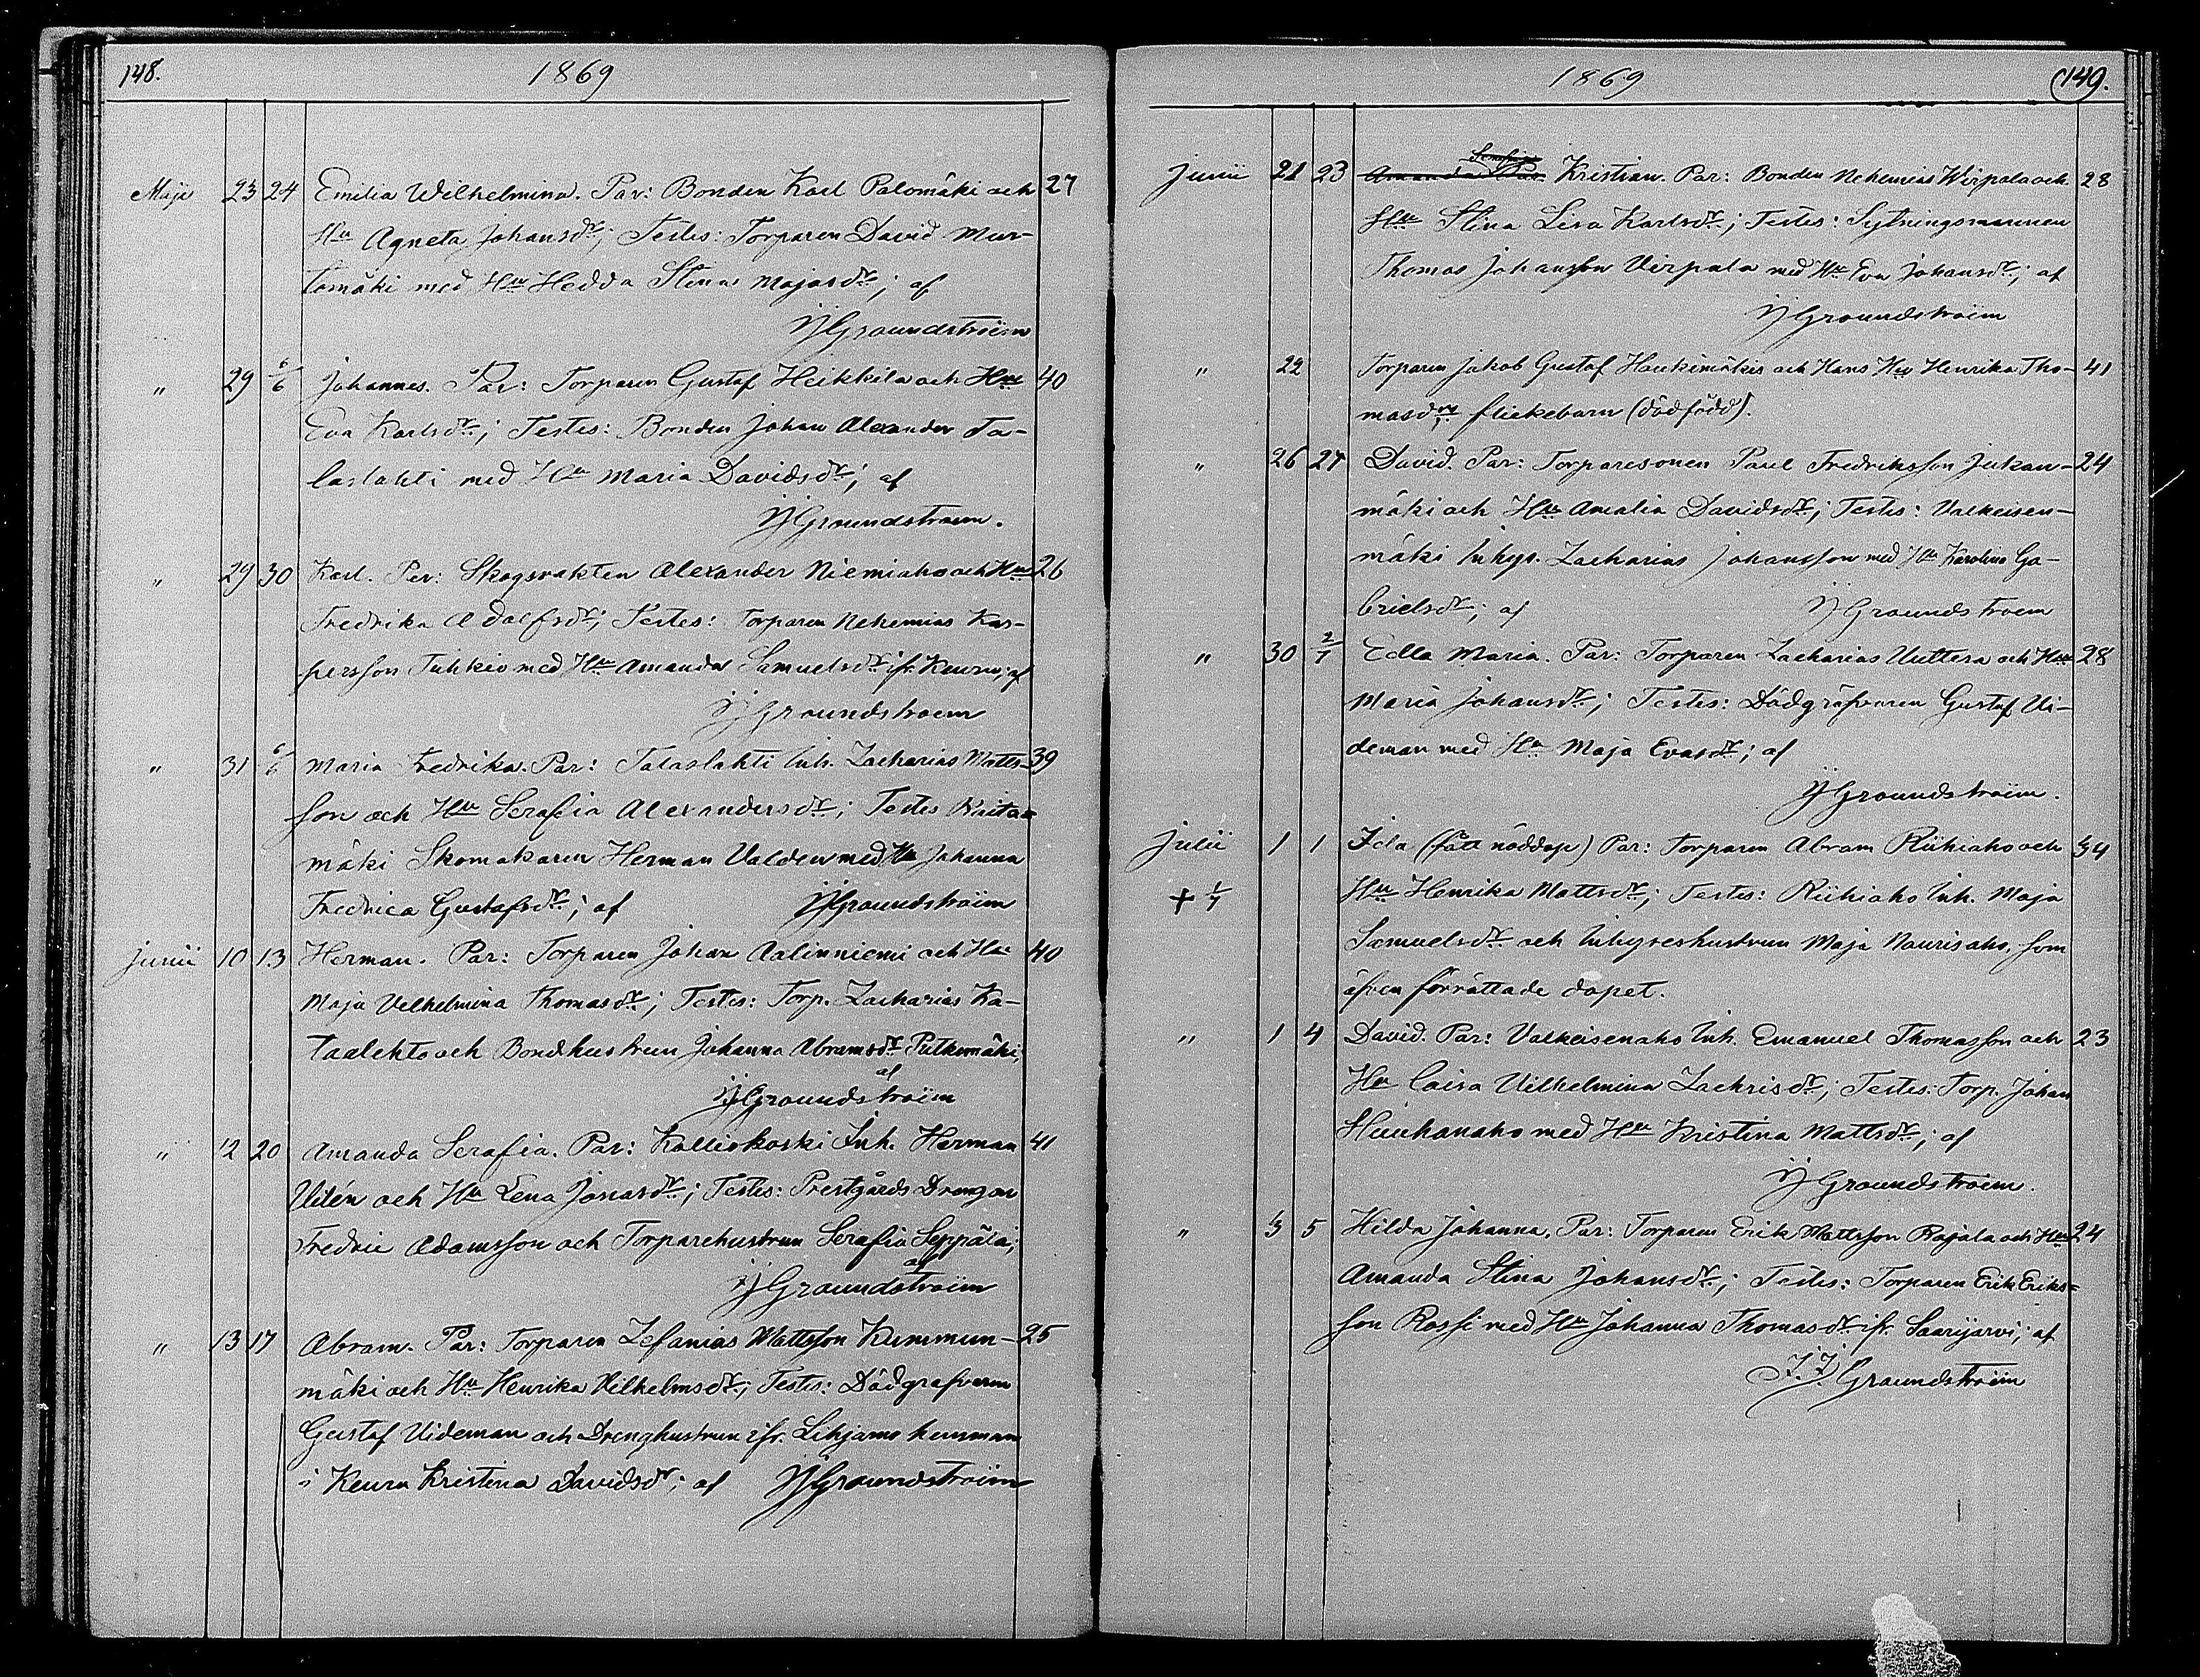 148.
1869
Maji 23 24 Emilia Wilhelmina. Par: Bonden Karl Palomäki och 27
Hu Agneta Johansdr; Testes: Torparen David Mur-
tomäki med Hu Hedda Stina Majasdr; af
JJGroundstroëm
" 29 6/6 Johannes. Par: Torparen Gustaf Heikkilä och Hu 40
Eva Karlsdr; Testes: Bonden Johan Alexander Ta-
laslahti med Hu Maria Davidsdr; af
JJGroundstroem.
" 29 30 Karl. Par: Skogsvakten Alexander Niemiaho och Hu 26
Fredrika Adolfsdr; Testes: Torparen Nehemias Kas-
persson Tuhkio med Hu Amanda Samuelsdr ifr. Keuru; af
JJGroundstroem
" 31 6/6 Maria Fredrika. Par: Talaslahti Inh. Zacharias Matts- 39
son och Hu Serafia Alexandersdr; Testes
mäki Skomakaren Herman Valden med Hu Johanna
Fredrica Gustafsdr; af JJGroundstroëm
Junii 10 13 Herman. Par: Torparen Johan Aalinniemi och Hu 40
Maja Velhelmina Thomasdr; Testes: Torp. Zacharias Ka-
taalehto och Bondhustrun Johanna Abramsdr Putkimäki;
af
JJGroundstroëm
" 12 20 Amanda Serafia. Par: Kalliokoski Inh. Herman 41
Vilén och Hu Lena Jonasdr; Testes: Prestgårds Drengen
Fredric Adamsson och Torparehustrun Serafia Seppälä;
af
JJGroundstroëm
" 13 17 Abram. Par: Torparen Zefanias Mattsson Kummun- 25
mäki och Hu Henrika Vilhelmsdr; Testes: Dödgrafvaren
Gustaf Videman och Drenghustrun ifr. Lihjamo hemman
i Keuru Kristina Davidsdr; af JJGroundstroëm
1869
149.
Junii 21 23 Kristian. Par: Bonden Nehemias Wirpala och 28
Hu Stina Lisa Karlsdr; Testes: Sytningsmannen
Thomas Johansson Virpala med Hu Eva Johansdr; af
JJGroundstroëm
" 22 Torparen Jakob Gustaf Haukimäkis och Hans Hu Henrika Tho- 41
masdrs flickebarn (dödfödd).
" 26 27 David. Par: Torparesonen Paul Fredriksson Jukan- 24
mäki och Hu Amalia Davidsdr; Testes: Valkeisen-
mäki Inhys. Zacharias Johansson med Hu Karolina Ga-
brielsdr; af JJGroundstroem
" 30 2/7 Edla Maria. Par: Torparen Zacharias Uuttera och Hu 28
Maria Johansdr; Testes: Dödgräfvaren Gustaf Vi-
deman med Hu Maja Evasdr; af
JJGroundstroëm.
Julii 1 1 Ida (fått nöddop) Par: Torparen Abram Riihiaho och 34
+ 1/7 Hu Henrika Mattsdr; Testes: Riihiaho Inh. Maja
Samuelsdr och Inhyseshustrun Maja Naurisaho, som
äfven förrättade dopet.
" 1 4 David. Par: Valkeisenaho Inh. Emanuel Thomasson och 23
Hu Caisa Vilhelmina Zachrisdr; Testes: Torp. Johan
Huuhanaho med Hu Kristina Mattsdr; af
JJGroundstroem.
" 3 5 Hilda Johanna. Par: Torparen Erik Mattsson Rajala och Hu 24
Amanda Stina Johansdr; Testes: Torparen Erik Eriks-
son Rossi med Hu Johanna Thomasdr ifr. Saarijärvi; af
J.J. Groundstroëm